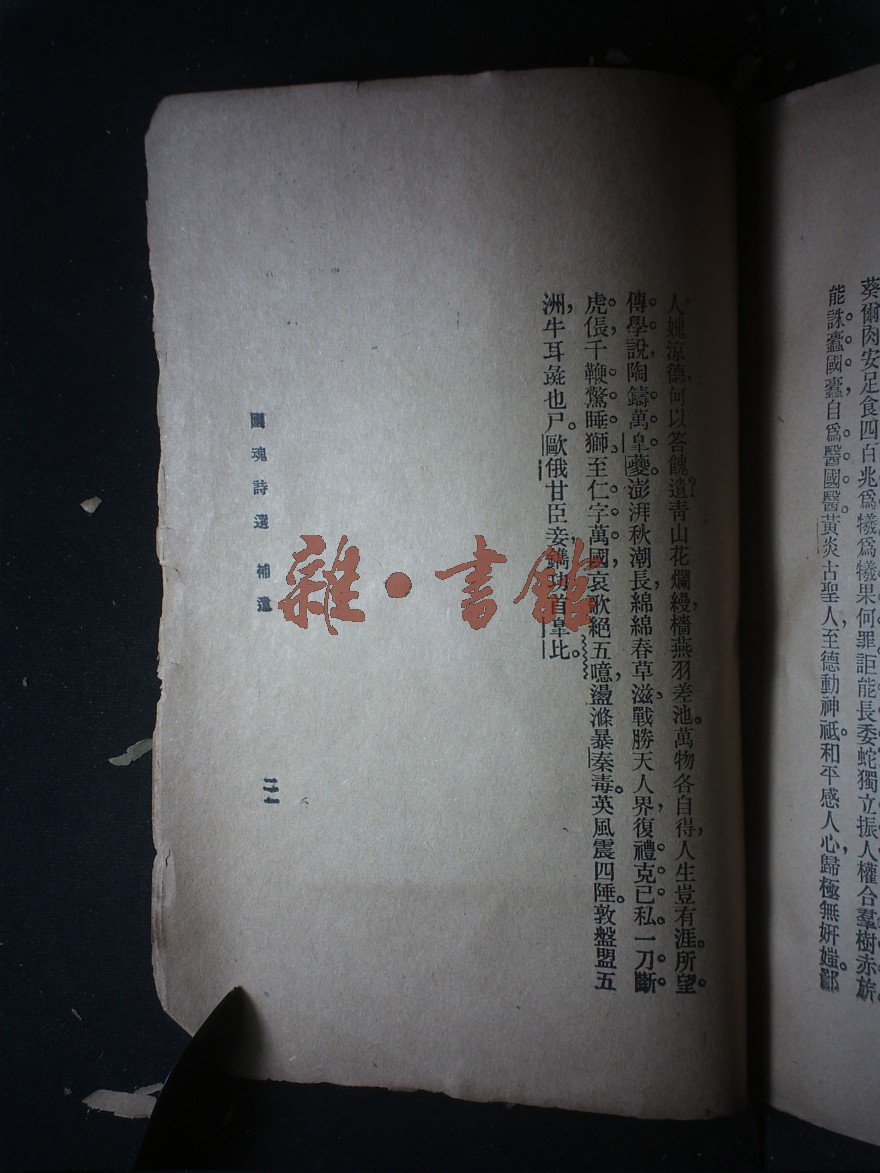 葵爾肉安足食四百兆爲犧爲犧果何罪詎能長委蛇獨立振人權合羣樹赤旂。
能誅蠹國蠹自爲醫國醫。黃炎古聖人至德動神祇和平感人心歸極無妍媸。鄙
人媿涼德何以答餽遺？青山花爛縵，檣燕羽差池。萬物各自得，人生豈有涯。所望
傳學說，陶鑄萬皇夔。澎湃秋潮長，綿綿春草滋。戰勝天人界，復禮克已私。一刀斷
虎倀，千鞭驚睡獅。至仁字萬國，哀歌絕五噫，盪滌暴秦毒。英風震四陲。敦盤盟五
洲，牛耳彘也尸。歐俄甘臣妾，鐫功首皇比。
國魂詩選 補遺
二一
雜·書館